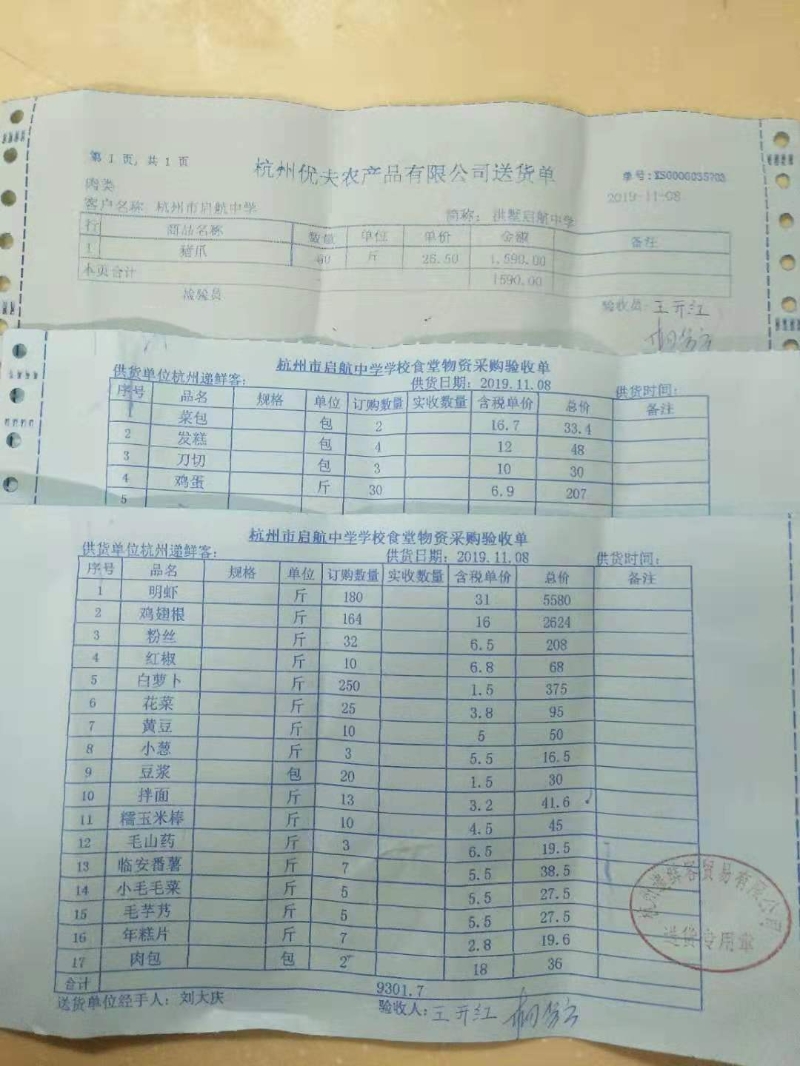 第 1 页, 共 1 页
杭州优夫农产品有限公司送货单
单号:XS0000035703
肉类
2019-11-08
客户名称 杭州市启航中学
简称:
行 商品名称 数量 单位 单价 金额 备注
1 猪爪 60 斤 26.50 1,590.00
本页合计 1590.00
检验员
验收员: 王开江
杭州市启航中学学校食堂物资采购验收单
供货单位杭州递鲜客: 供货日期: 2019.11.08 供货时间:
序号 品名 规格 单位 订购数量 实收数量 含税单价 总价 备注
1 菜包 包 2 16.7 33.4
2 发糕 包 4 12 48
3 刀切 包 3 10 30
4 鸡蛋 斤 30 6.9 207
5
杭州市启航中学学校食堂物资采购验收单
供货单位杭州递鲜客: 供货日期: 2019.11.08 供货时间:
序号 品名 规格 单位 订购数量 实收数量 含税单价 总价 备注
1 明虾 斤 180 31 5580
2 鸡翅根 斤 164 16 2624
3 粉丝 斤 32 6.5 208
4 红椒 斤 10 6.8 68
5 白萝卜 斤 250 1.5 375
6 花菜 斤 25 3.8 95
7 黄豆 斤 10 5 50
8 小葱 斤 3 5.5 16.5
9 豆浆 包 20 1.5 30
10 拌面 斤 13 3.2 41.6
11 糯玉米棒 斤 10 4.5 45
12 毛山药 斤 3 6.5 19.5
13 临安番薯 斤 7 5.5 38.5
14 小毛毛菜 斤 5 5.5 27.5
15 毛芋艿 斤 5 5.5 27.5
16 年糕片 斤 7 2.8 19.6
17 肉包 包 2 18 36
合计 9301.7
送货单位经手人: 刘大庆 验收人: 王开江
杭州递鲜客贸易有限公司
送货专用章